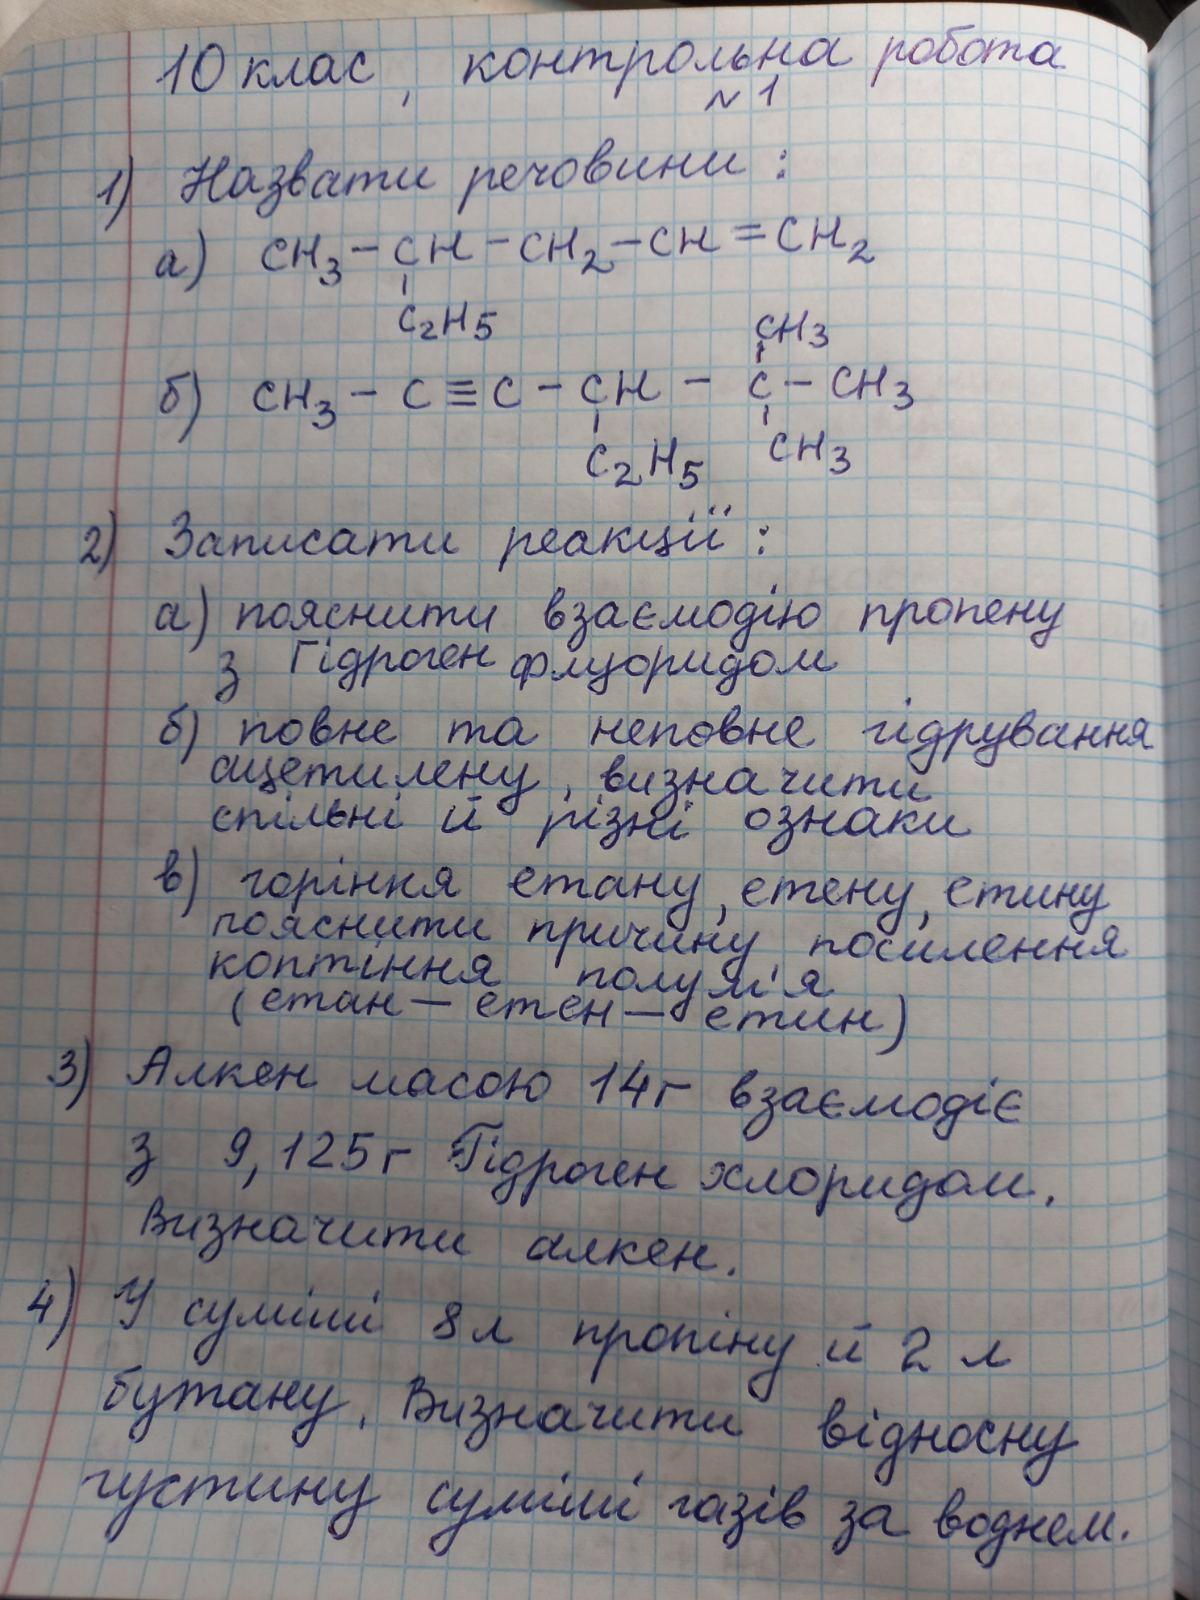 10 клас, контрольна робота
№1
1) Назвати речовини:
а) CH3 – CH – CH2 – CH = CH2
C2H5
CH3
б) CH3 – C ≡ C – CH – C – CH3
C2H5 CH3
2) Записати реакції:
а) пояснити взаємодію пропену
з Гідроген флуоридом
б) повне та неповне гідрування
ацетилену, визначити
спільні й різні ознаки
в) горіння етану, етену, етину
пояснити причину посилення
коптіння полум'я
(етан – етен – етин)
3) Алкен масою 14г взаємодіє
з 9,125г Гідроген хлоридом.
Визначити алкен.
4) У суміші 8л пропіну й 2 л
бутану. Визначити відносну
густину суміші газів за воднем.